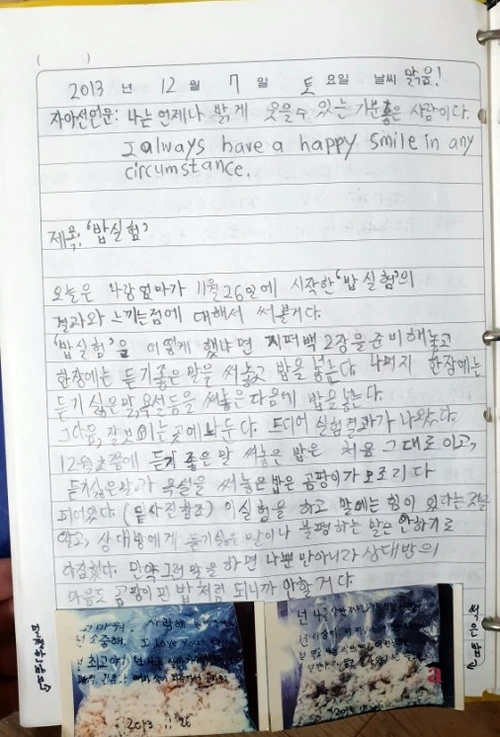 ( )
2013 년 12 월 7 일 토 요일 날씨 맑음!
자아선언문: 나는 언제나 밝게 웃을 수 있는 기분 좋은 사람이다.
I always have a happy smile in any
circumstance.
제목: '밥실험'
오늘은 나랑 엄마가 11월 26일에 시작한 '밥 실험'의
결과와 느끼는점에 대해서 써볼거다.
'밥실험'을 어떻게 했냐면 지퍼백 2장을 준비해놓고
한장에는 듣기좋은 말을 써놓고 밥을 넣는다. 나머지 한장에는
듣기 싫은말, 욕설등을 써놓은 다음에 밥을 넣는다.
그다음, 잘보이는 곳에 놔둔다. 드디어 실험결과가 나왔다.
12월초쯤에 듣기 좋은 말 써놓은 밥은 처음 그대로이고,
듣기싫은말과 욕설을 써놓은밥은 곰팡이가 모조리 다
피어있다 (밑 사진참조) 이실험을 하고 말에는 힘이 있다는것을
알고, 상대방에게 듣기싫은 말이나 불평하는 말은 안하기로
다짐했다. 만약 그런 말을 하면 나뿐만아니라 상대방의
마음도 곰팡이 핀 밥처럼 되니까 안할 거다.
고마워. 사랑해
넌 소중해. I Love You!
넌 최고야!
2013 11 26
넌 나쁜